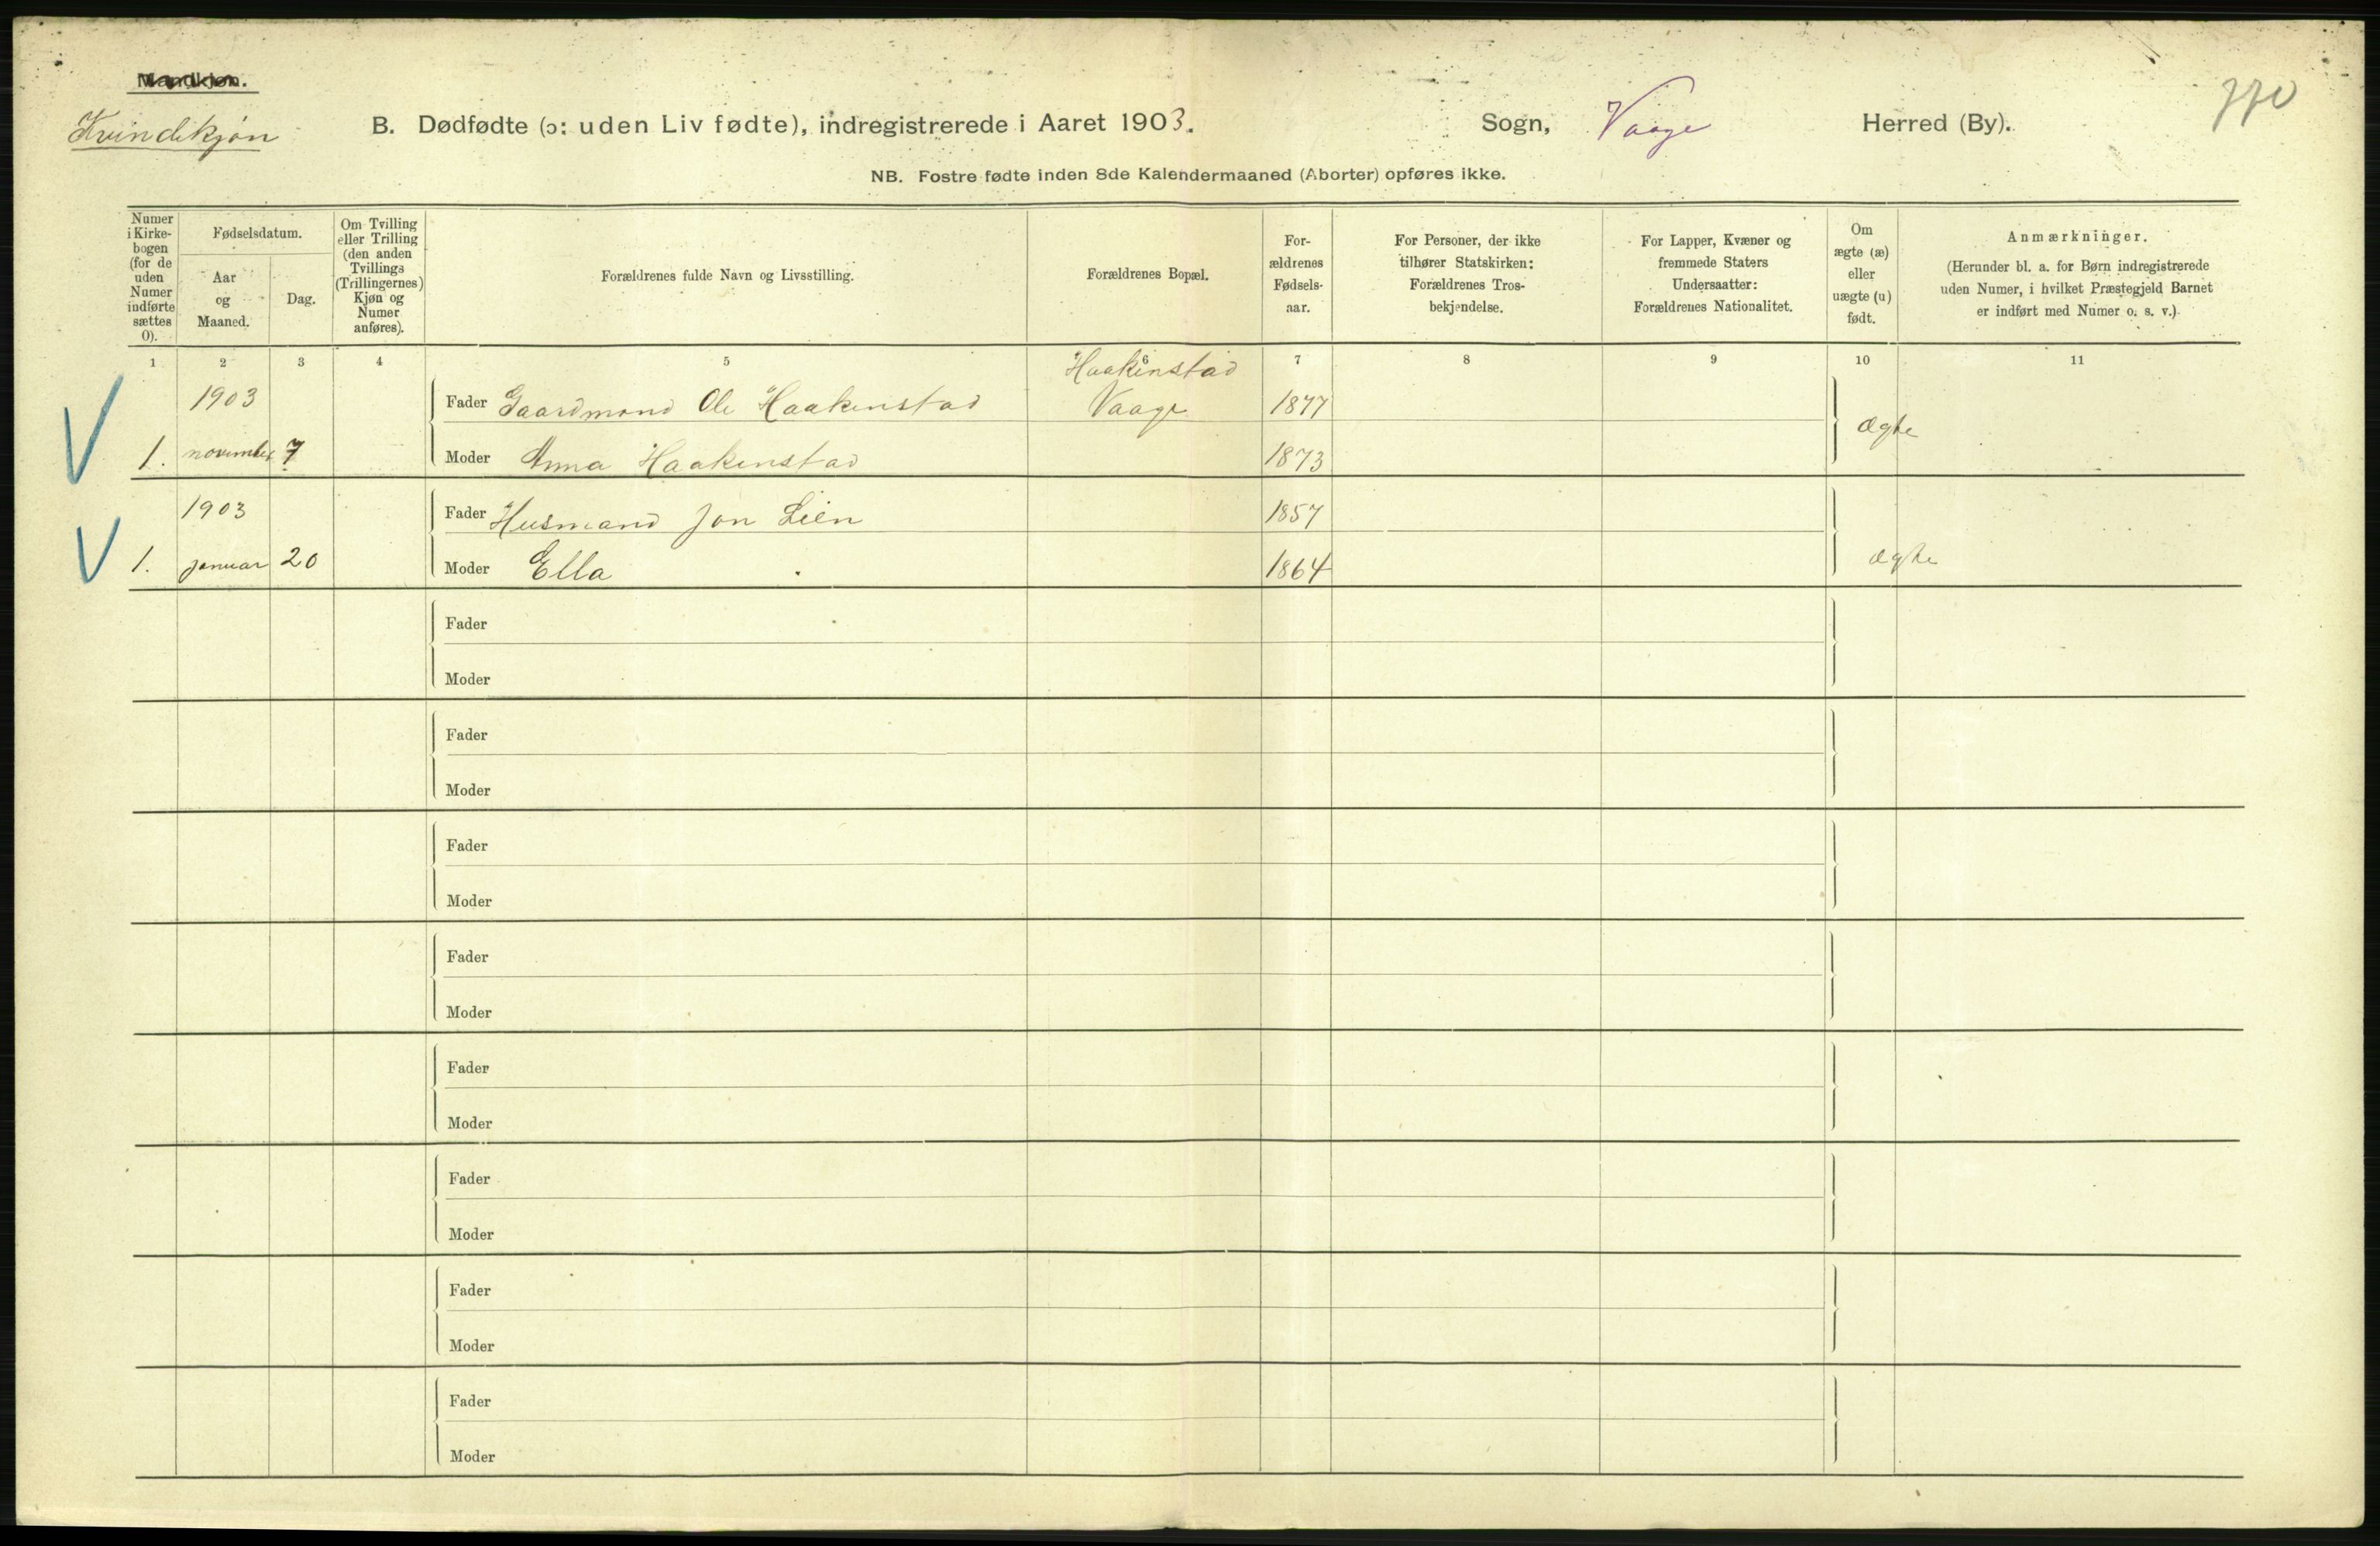 Mandkjøn.
Kvindekjøn
B. Dødfødte (ɔ: uden Liv fødte), indregistrerede i Aaret 1903. Sogn, Vaage Herred (By).
NB. Fostre fødte inden 8de Kalendermaaned (Aborter) opføres ikke.
Numer i Kirke-bogen (for de uden Numer indførte sættes 0).
Fødselsdatum.
Aar og Maaned.
Dag.
Om Tvilling eller Trilling (den anden Tvillings (Trillingernes) Kjøn og Numer anføres).
Forældrenes fulde Navn og Livsstilling.
Forældrenes Bopæl.
For-ældrenes Fødsels-aar.
For Personer, der ikke tilhører Statskirken: Forældrenes Tros-bekjendelse.
For Lapper, Kvæner og fremmede Staters Undersaatter: Forældrenes Nationalitet.
Om ægte (æ) eller uægte (u) født.
Anmærkninger.
(Herunder bl. a. for Børn indregistrerede uden Numer, i hvilket Præstegjeld Barnet er indført med Numer o. s. v.)
1 2 3 4 5 6 7 8 9 10 11
Haakenstad
1903 Fader Gaardmand Ole Haakenstad Vaage 1877
ægte
1. november 7 Moder Anna Haakenstad 1873
1903 Fader Husmand Jon Lien 1857
1. januar 20 Moder Ella 1864 ægte
Fader
Moder
Fader
Moder
Fader
Moder
Fader
Moder
Fader
Moder
Fader
Moder
Fader
Moder
Fader
Moder